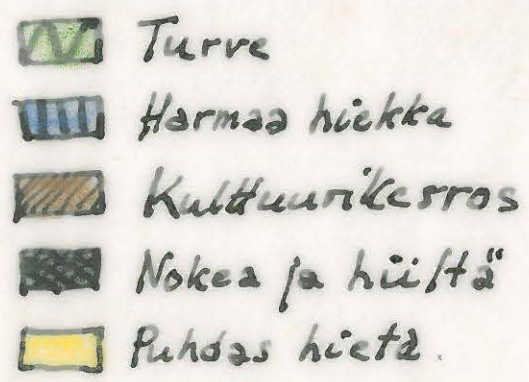 Turve
Harmaa hiekka
Kulttuurikerros
Nokea ja hiiltä
Puhdas hieta.